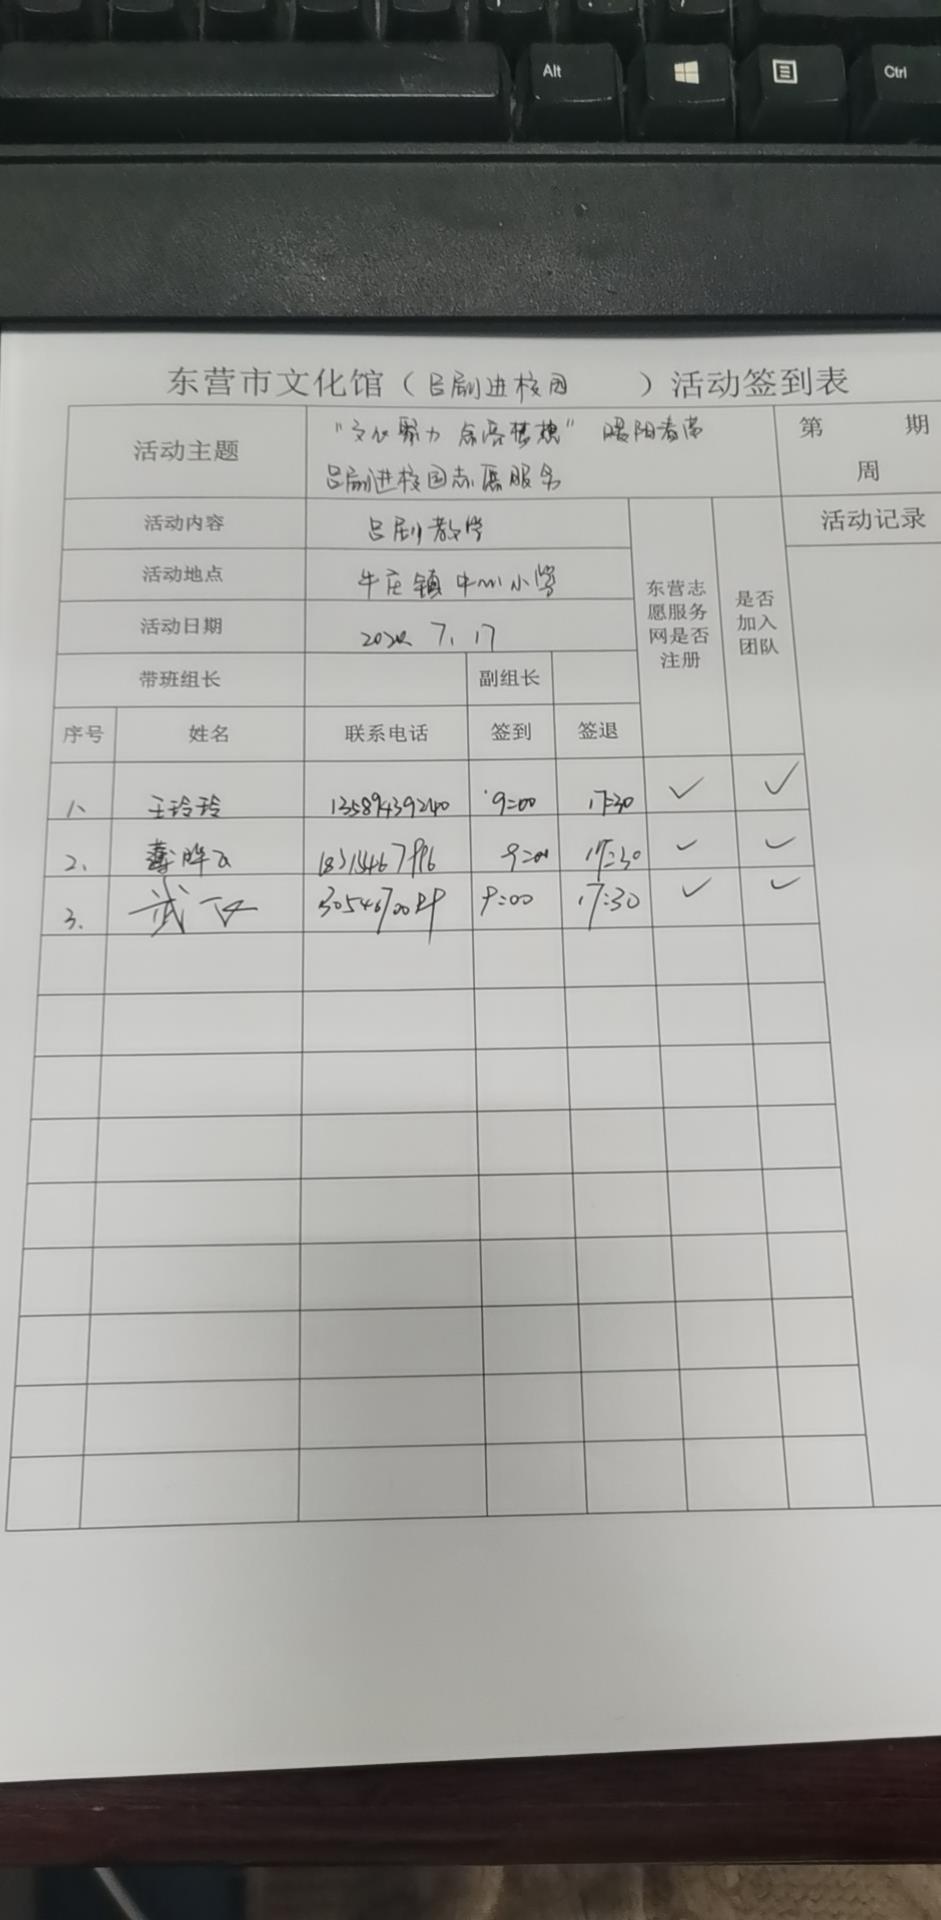 Alt
Ctrl
东营市文化馆（吕剧进校园 ）活动签到表
活动主题
"文化聚力 点亮梦想" 暖阳春蕾
吕剧进校园志愿服务
第 期
周
活动内容
吕剧教学
活动记录
活动地点
牛庄镇中心小学
东营志
愿服务
网是否
注册
是否
加入
团队
活动日期
7.17
带班组长
副组长
序号 姓名 联系电话 签到 签退
1、 王玲玲 13589439240 9:00 17:30 ✓ ✓
2、 9:00 17:30 ✓ ✓
3、 武 9:00 17:30 ✓ ✓